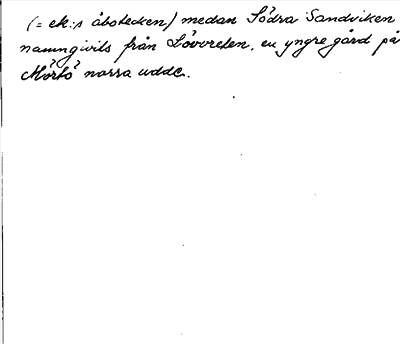 (= ek:s åbotecken) medan Södra Sandviken
namngivits från Lövvreten, en yngre gård på
Mörtö norra udde.